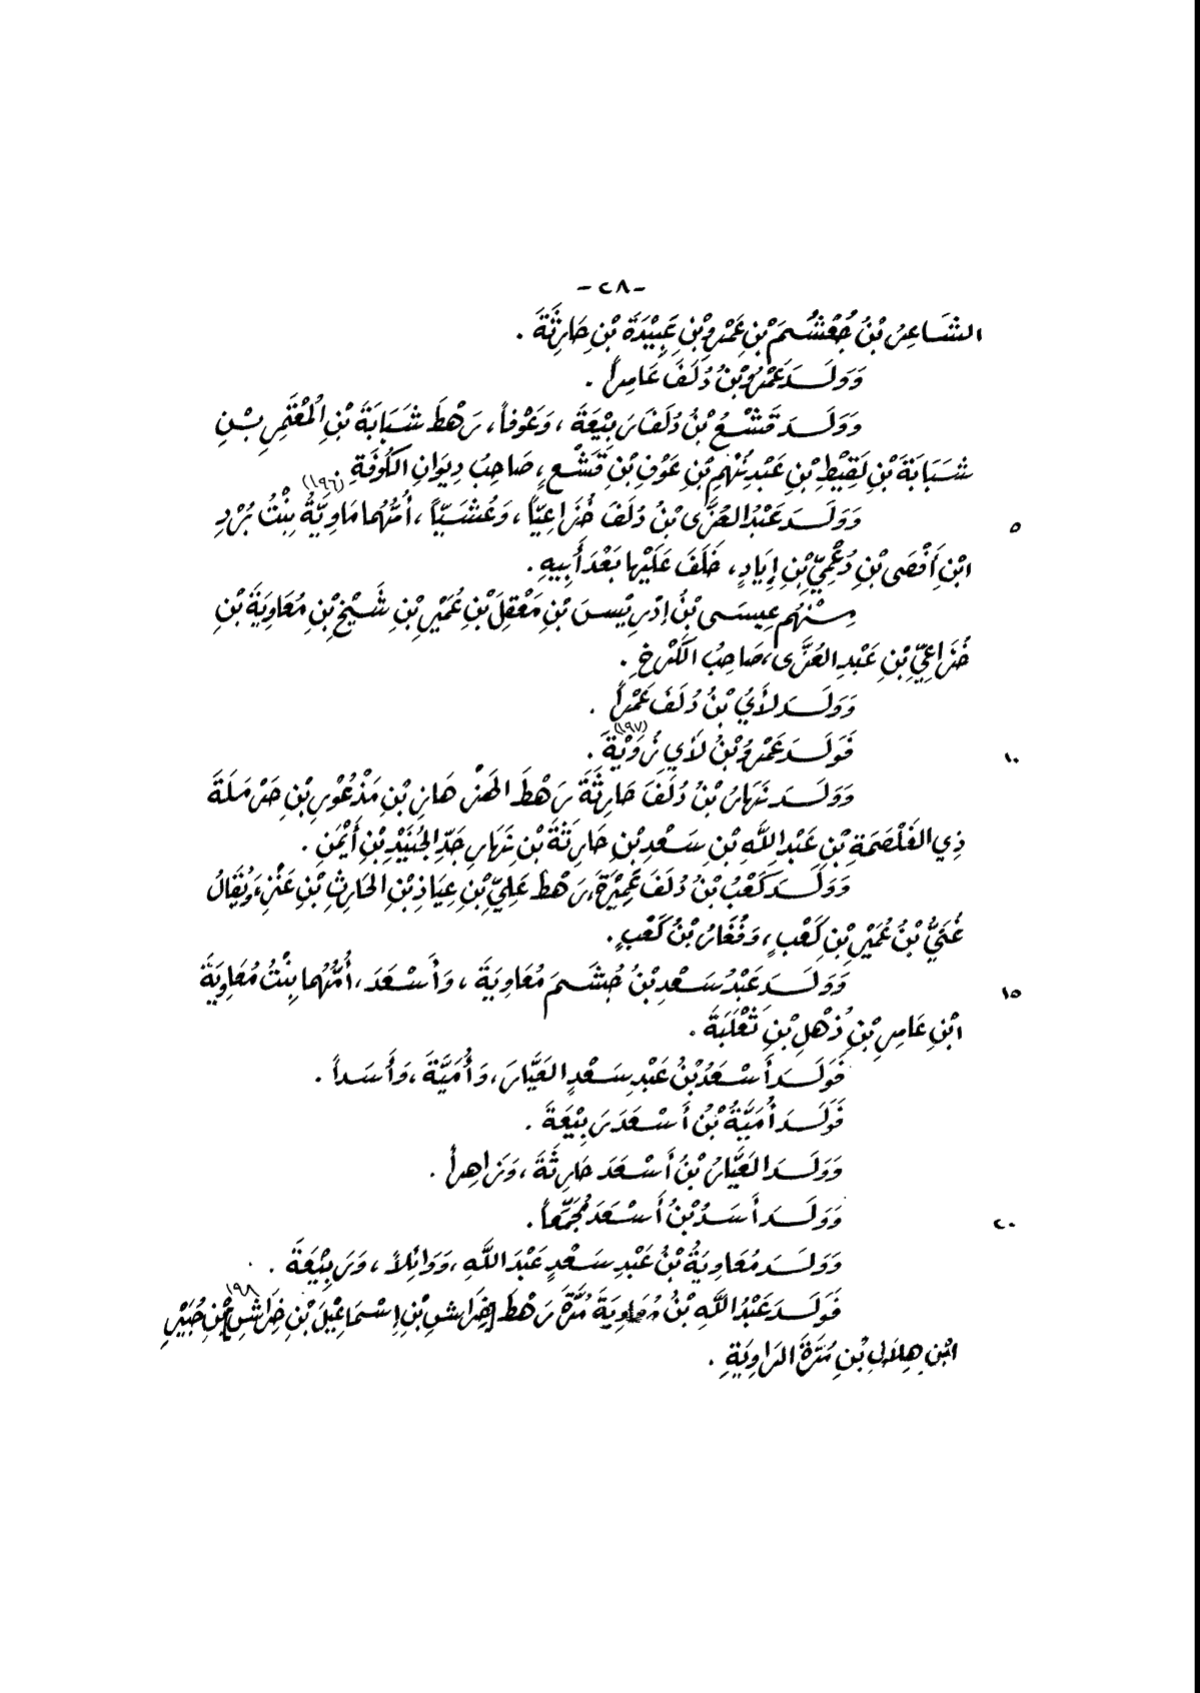 -٢٨-
الشَاعِرُ بْنُ جُعْشُمَ بْنِ عَمْرِو بْنِ عَبِيْدَةَ بْنِ حَارِثَةَ .
وَوَلَدَ عَمْرُو بْنُ دُلَفَ عَامِراً .
وَوَلَدَ قَشْعُ بْنُ دُلَفَ رَبِيْعَةَ ، وَعَوْفاً ، رَهْطَ شَبَابَةَ بْنِ الْمُعْتَمِرِ بْنِ
شَبَابَةَ بْنِ لَقِيْطِ بْنِ عَبْدِ نُهْمِ بْنِ عَوْفِ بْنِ قَشْعٍ ، صَاحِبُ دِيوَانِ الكُوفَةِ .
٥ وَوَلَدَ عَبْدُ العُزَّى بْنُ دُلَفَ خُزَاعِيّاً ، وَعُشَيّاً ، أُمُّهُما مَاوِيَّةُ (١٩٦) بِنْتُ بُرْدِ
ابْنِ أَفْصَى بْنِ دُعْمِيِّ بْنِ إِيَادٍ ، خَلَفَ عَلَيْها بَعْدَ أَبِيهِ .
مِنْهُم عِيسَى بْنُ إِدْرِيْسَ بْنِ مَعْقِلِ بْنِ عُمَيْرِ بْنِ شَيْخِ بْنِ مُعَاوِيَةَ بْنِ
خُزَاعِيِّ بْنِ عَبْدِ العُزَّى ، صَاحِبُ الكَرْخِ .
وَوَلَدَ لأَيُ بْنُ دُلَفَ عَمْراً .
١٠ فَوَلَدَ عَمْرُو بْنُ لأَيِ رُوَيْبَةَ (١٩٧) .
وَوَلَدَ نَهَارُ بْنُ دُلَفَ حَارِثَةَ رَهْطَ الهَزْهَازِ بْنِ مَذْعُورِ بْنِ حَرْمَلَةَ
ذِي الغَلْصَمَةِ بْنِ عَبْدِ اللَّهِ بْنِ سَعْدِ بْنِ حَارِثَةَ بْنِ نَهَارِ جَدِّ الجُنَيْدِ بْنِ أَيْمَنِ .
وَوَلَدَ كَعْبُ بْنُ دُلَفَ عَمِيْرَةَ ، رَهْطَ عَلِيِّ بْنِ عِيَاذِ بْنِ الحَارِثِ بْنِ عَنْزٍ ، وَيُقَالُ
غُنَيُّ بْنُ عُمَيْرِ بْنِ كَعْبٍ ، وَفُغَارُ بْنُ كَعْبٍ .
١٥ وَوَلَدَ عَبْدُ سَعْدِ بْنُ جُشَمَ مُعَاوِيَةَ ، وَأَسْعَدَ ، أُمُّهُما بِنْتُ مُعَاوِيَةَ
ابْنِ عَامِرِ بْنِ ذُهْلِ بْنِ ثَعْلَبَةَ .
فَوَلَدَ أَسْعَدُ بْنُ عَبْدِ سَعْدٍ العَيَّارَ ، وَأُمَيَّةَ ، وَأَسَداً .
فَوَلَدَ أُمَيَّةُ بْنُ أَسْعَدَ رَبِيْعَةَ .
وَوَلَدَ العَيَّارُ بْنُ أَسْعَدَ حَارِثَةَ ، وَزَاهِراً .
٢٠ وَوَلَدَ أَسَدُ بْنُ أَسْعَدَ مُجَمِّعاً .
وَوَلَدَ مُعَاوِيَةُ بْنُ عَبْدِ سَعْدٍ عَبْدَ اللَّهِ ، وَوَائِلاً ، وَرَبِيْعَةَ .
فَوَلَدَ عَبْدُ اللَّهِ بْنُ مُعَاوِيَةَ مُرَّةَ رَهْطَ [خِرَاشِ بْنِ إِسْمَاعِيْلَ بْنِ خِرَاشٍ] (١٩٨) بْنِ جُبَيْرِ
ابْنِ هِلَالِ بْنِ مُرَّةَ الرَاوِيَةِ .